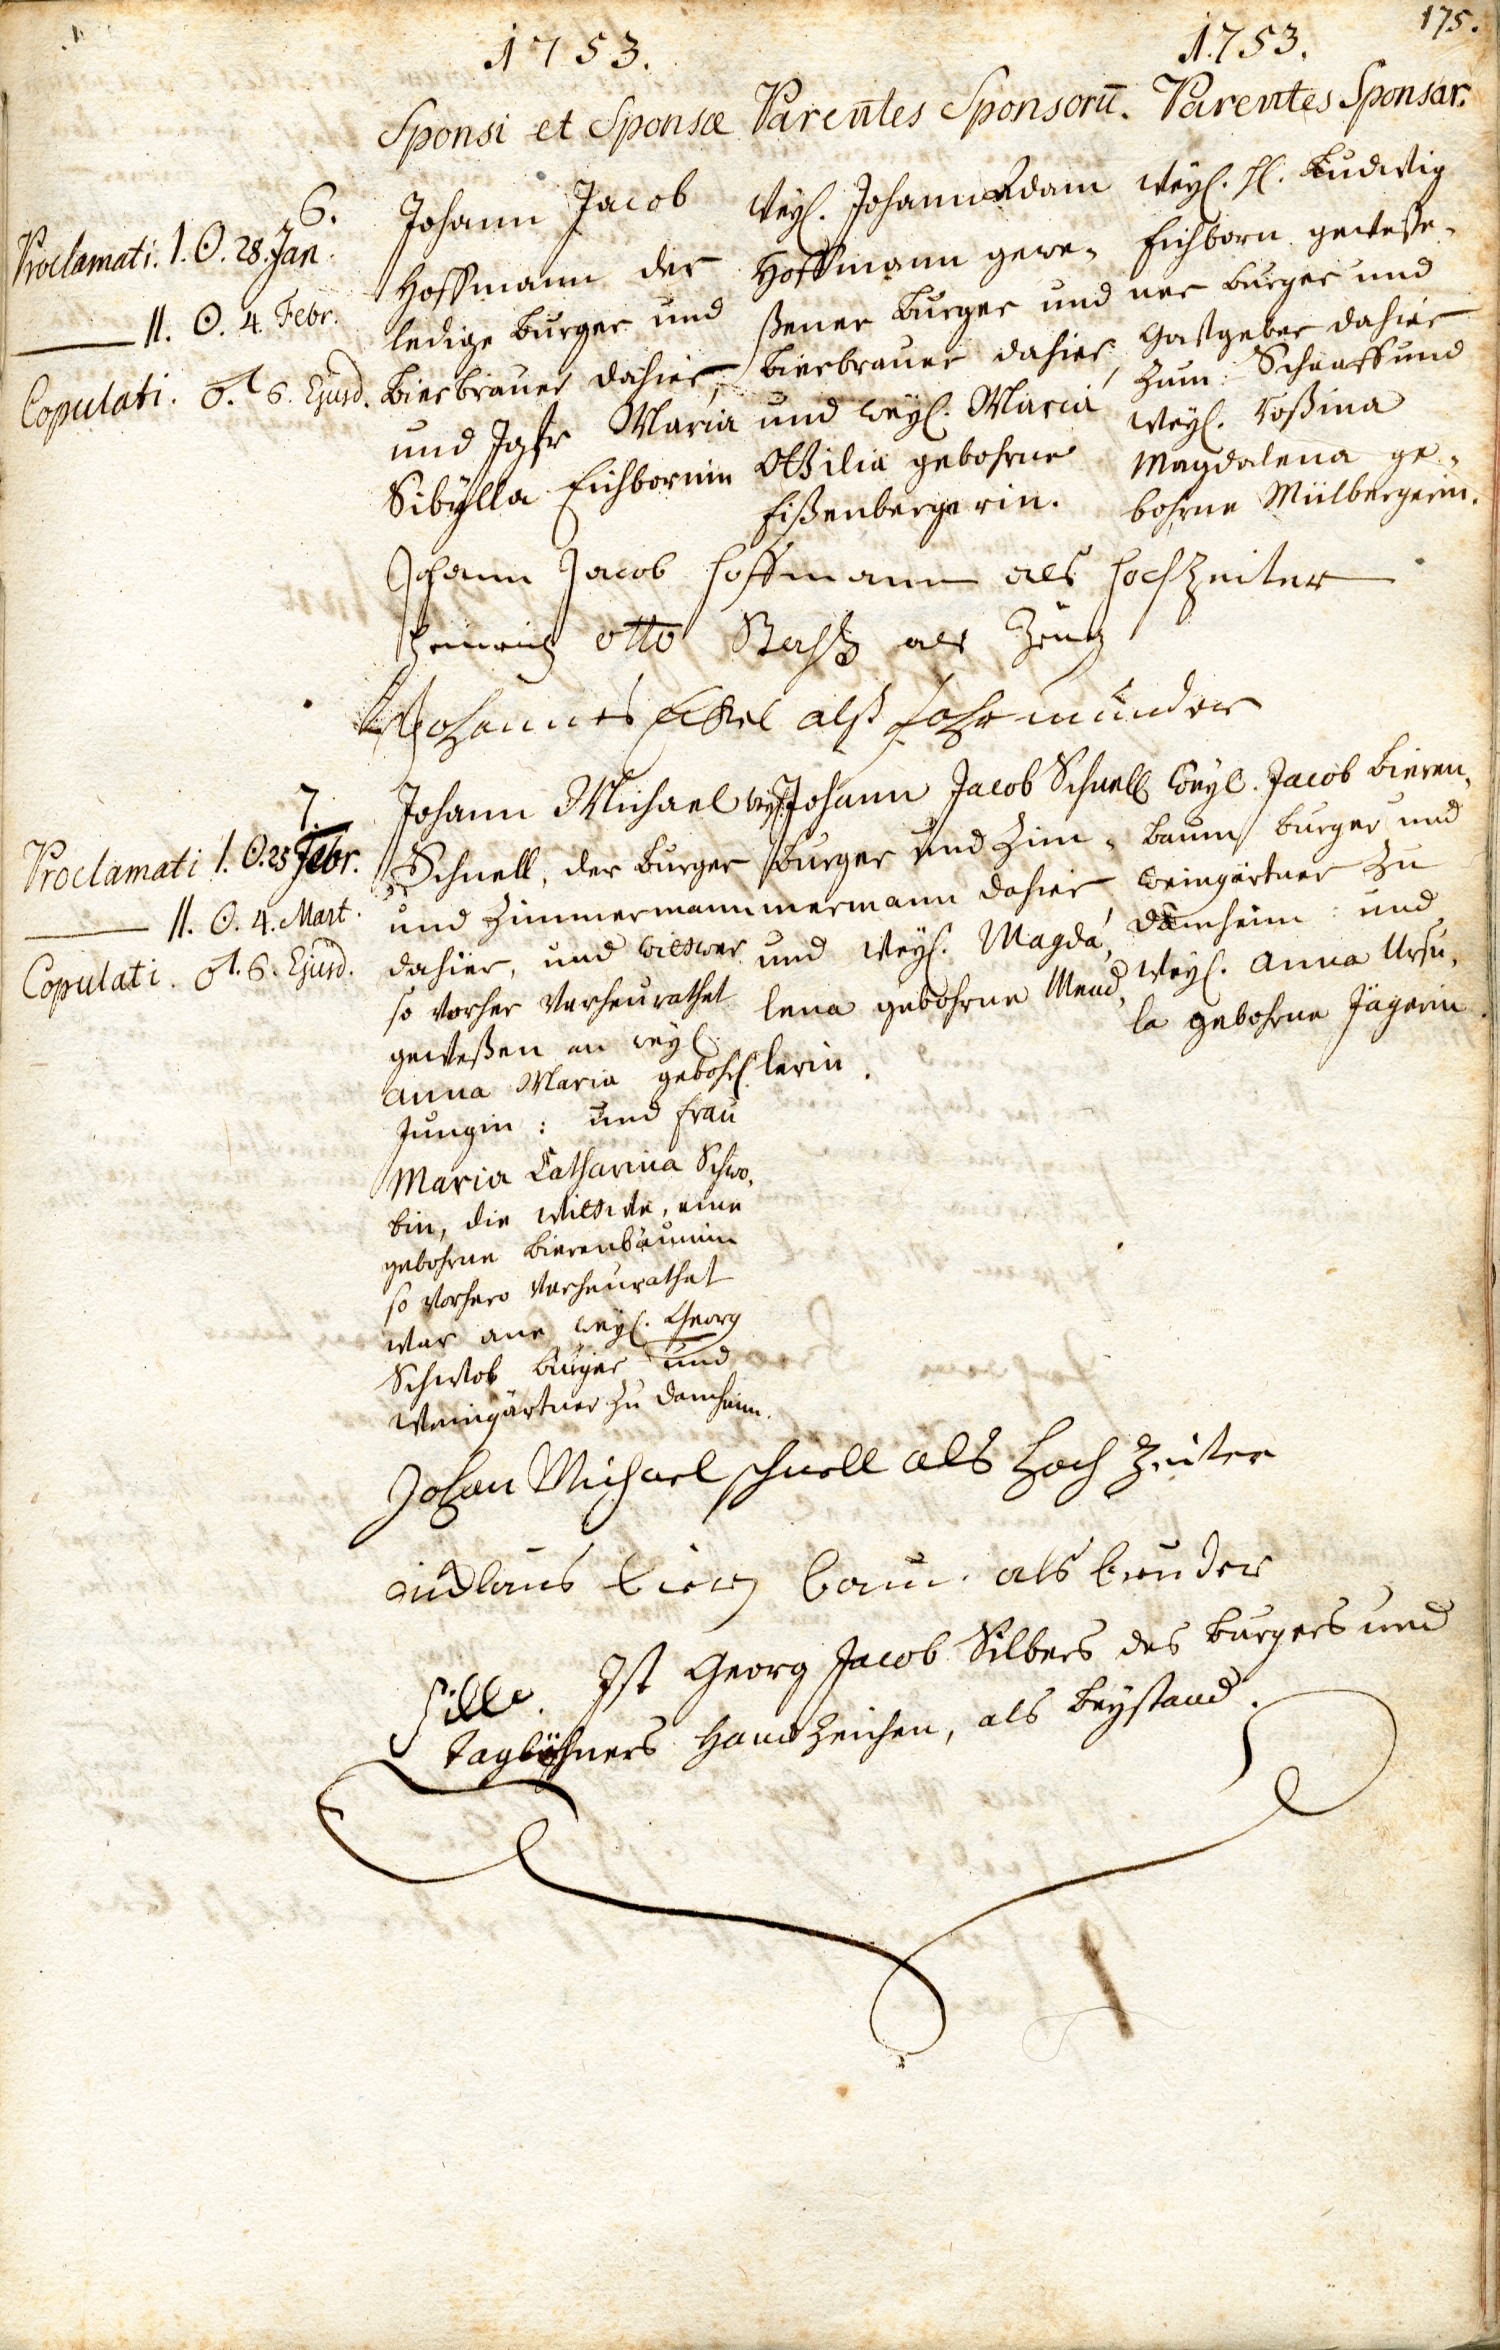 175.
1753.
1753.
Sponsi et Sponsæ
Parentes Sponsorū.
Parentes Sponsar.
6.
Proclamati. I. ☉. 28. Jan.
——— II. ☉. 4. Febr.
Copulati. ♂. 6. Ejusd.
Johann Jacob
Hoffmann der
ledige Burger und
Bierbrauer dahier,
und Jgfr Maria
Sibÿlla Eichbornin
Weÿl. Johann Adam
Hoffmann gewe-
ßener Burger und
Bierbrauer dahier,
und weÿl. Maria
Ottilia gebohrne
Eißenbergerin.
Weÿl. H. Ludwig
Eichborn geweße-
ner Burger und
Gastgeber dahier
zum Schaaff und
Weÿl. Roßina
Magdalena ge-
bohrne Mülbergerin.
Johann Jacob Hoffmann als Hochzeiter
Henrich Otto als Zeug
Johannes Eckel alß Fohrmünder
7.
Proclamati I. ☉. 25 Febr.
——— II. ☉. 4. Mart.
Copulati. ♂. 6. Ejusd.
Johann Michael
Schnell, der Burger
und Zimmermann
dahier, und Wittwer
so vorher verheurathet
geweßen an weÿl.
Anna Maria gebohrl.
Jungin: und Frau
Maria Catharina Schwo-
bin, die Wittwe, eine
gebohrne Bierenbäumin
so vorhero verheurathet
war ane weÿl. Georg
Schwob Burger und
Weingärtner zu Damheim.
weÿl. Johann Jacob Schnell
Burger und Zim-
mermann dahier,
und Weÿl. Magda-
lena gebohrne Mend-
lerin.
Weÿl. Jacob Bieren-
baum Burger und
Weingärtner zu
Damheim: und
Weÿl. Anna Ursu-
la gebohrne Jägerin.
Johan Michael schnell als Hoch Zeiter
nicklaus bieren baum als bruder
Ist Georg Jacob Silbers des Burgers und
Taglöhners Handzeichen, als Beÿstand.